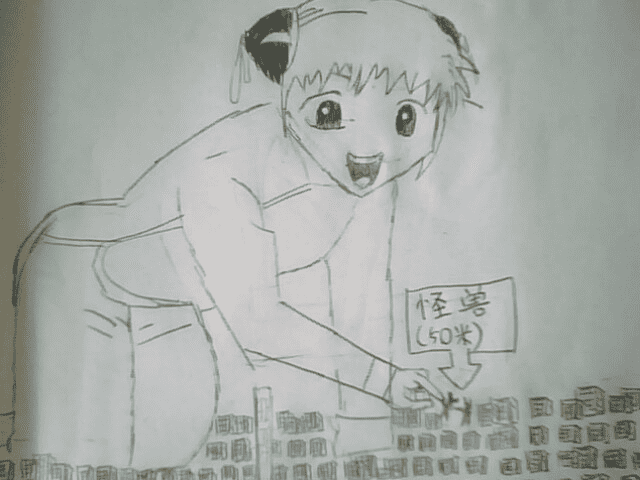 怪兽
(50米)